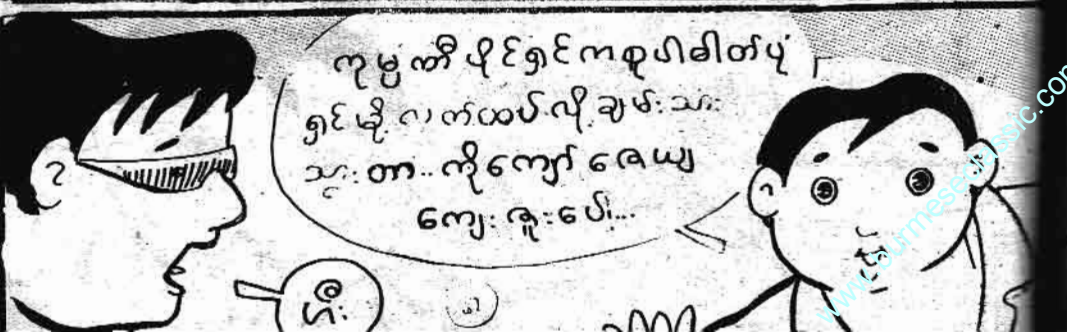 ကုမ္ပဏီပိုင်ရှင်ကစူပါဓါတ်ပုံ
ရှင်မို့ လက်ထပ်လို့ချမ်းသား
သွားတာ..ကိုကျော်ဇေယျ
ကျေးဇူးပေါ့...
ဟီး
www.burmeseclassic.com